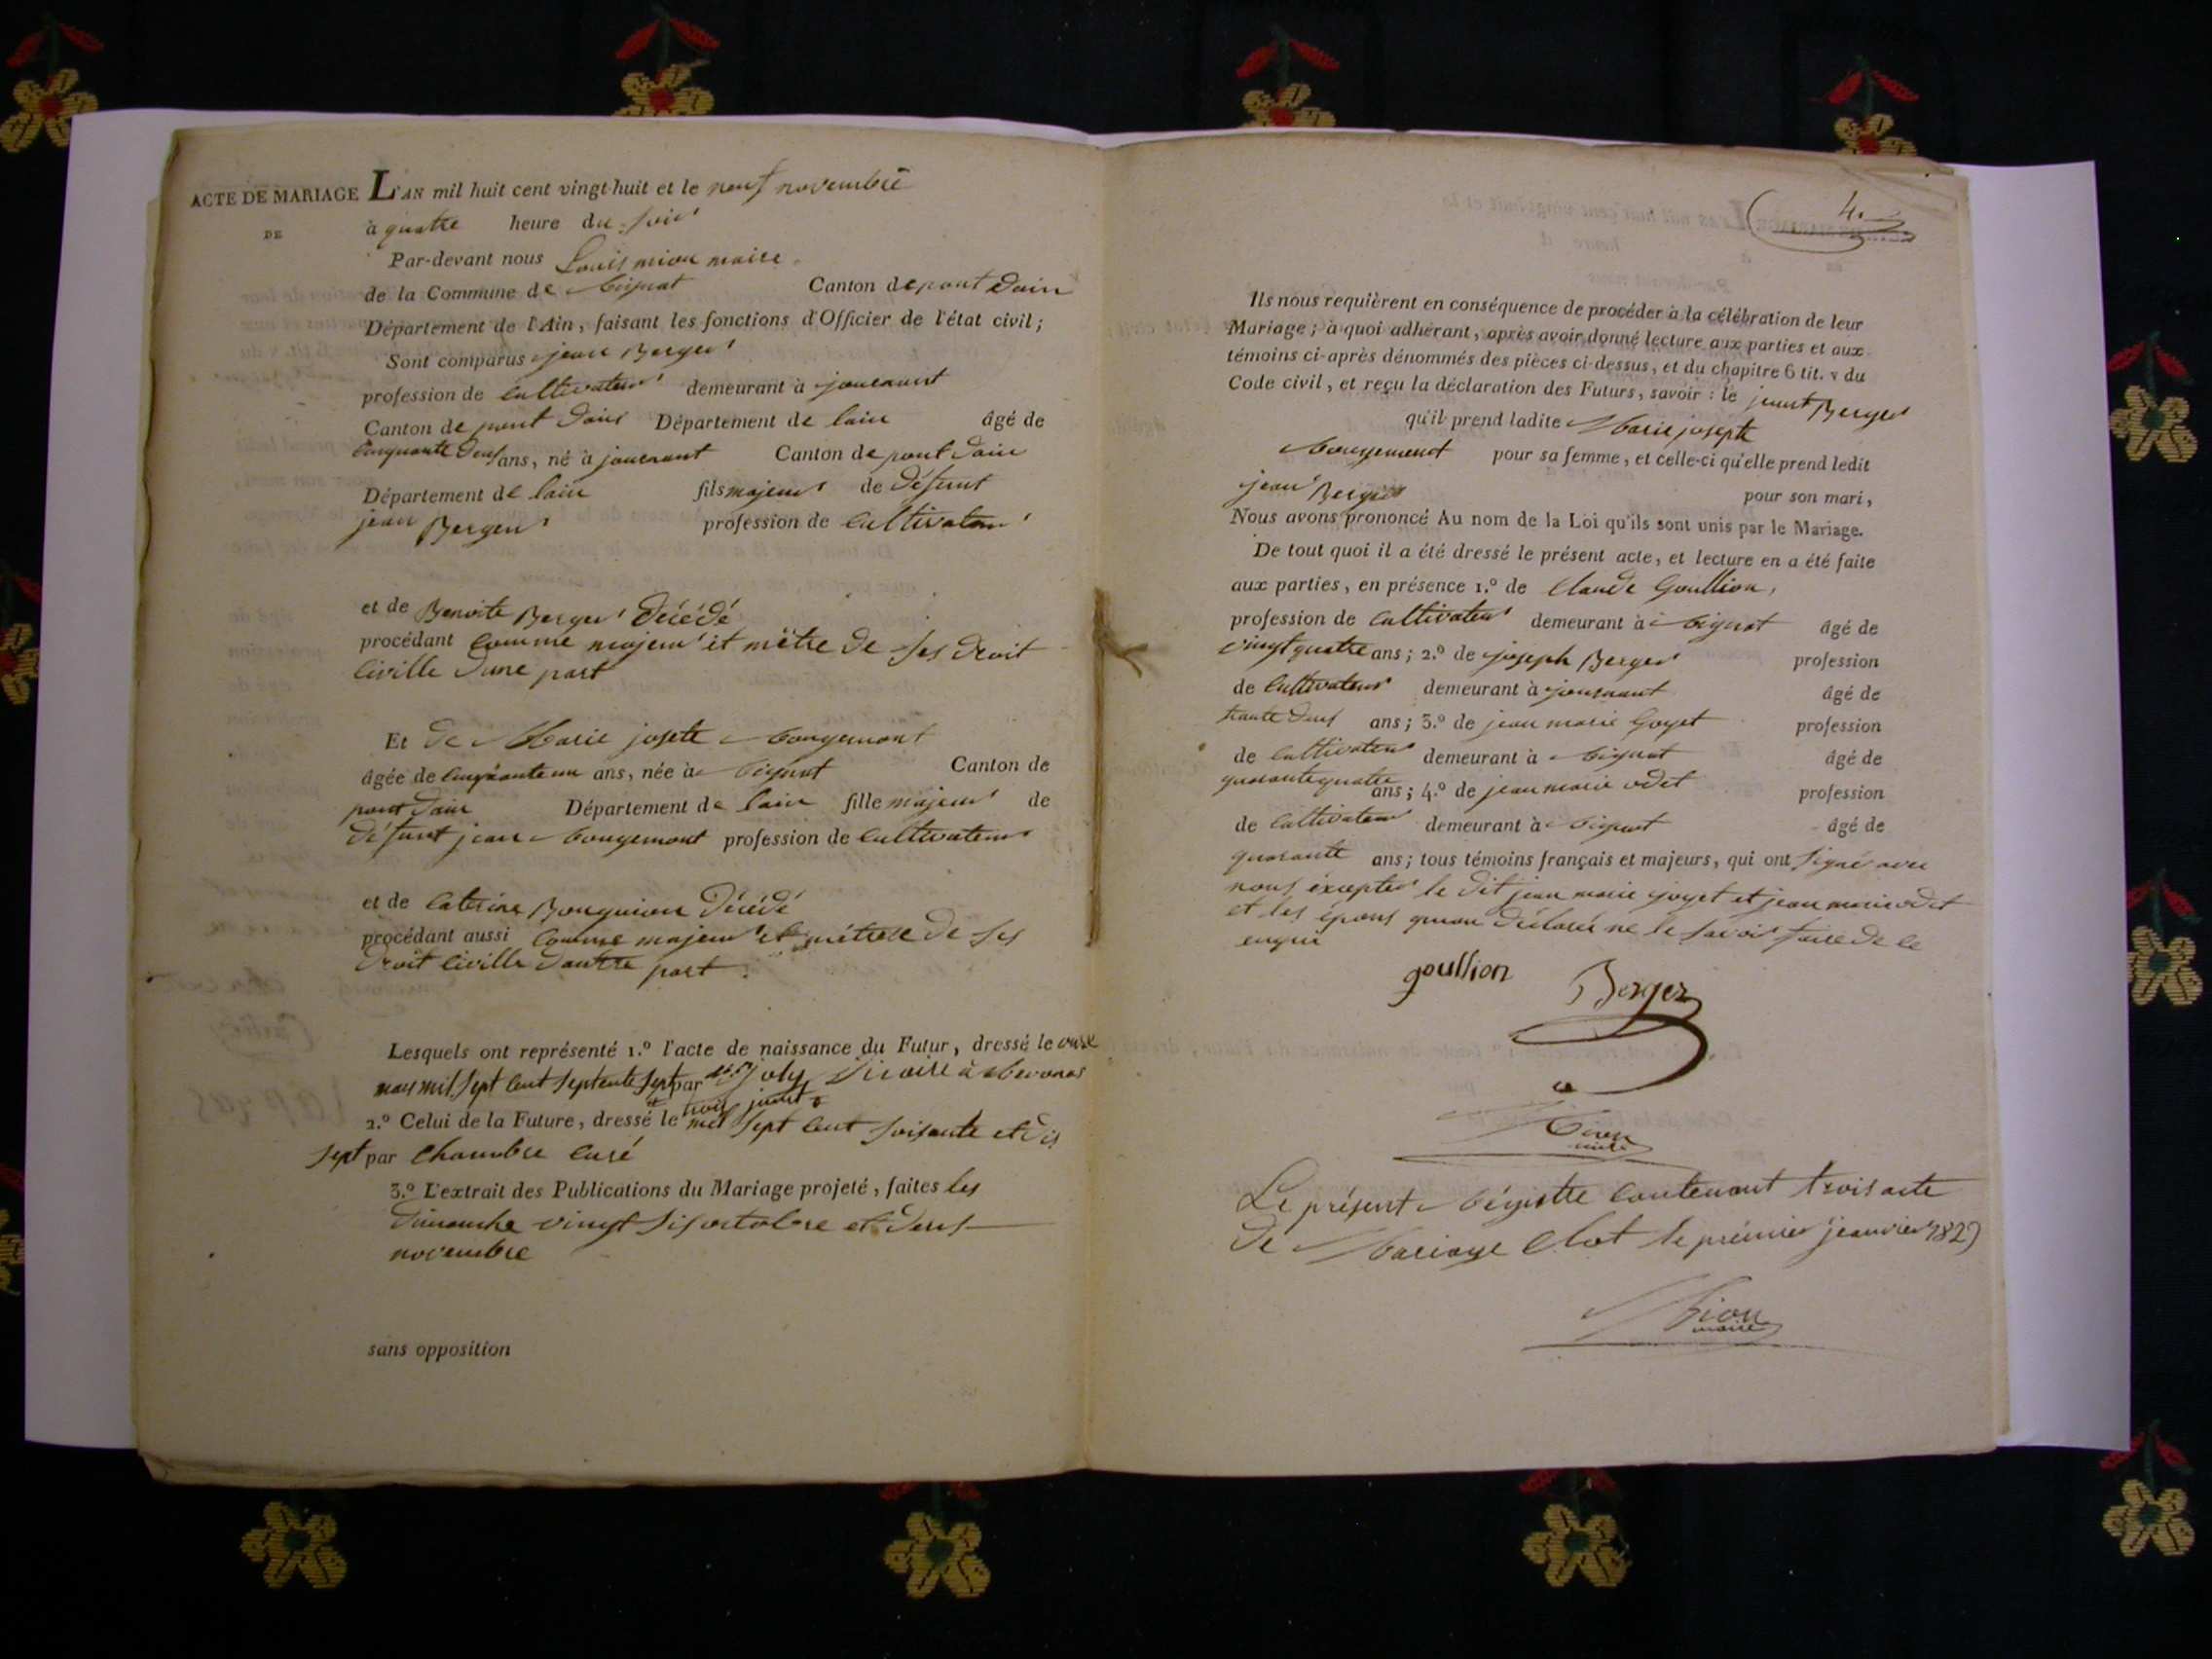 ACTE DE MARIAGE
DE
L'AN mil huit cent vingt-huit et le neuf novembre
à quatre heure du soir
Par-devant nous Louis miou maire
de la Commune de Canton de pont dain
Département de l'Ain, faisant les fonctions d'Officier de l'état civil;
Sont comparus jean Berger
profession de cultivateur demeurant à journant
Canton de pont dain Département de lain âgé de
cinquante deus ans, né à journant Canton de pont dain
Département de lain fils majeur de défunt
jean Berger profession de cultivateur
et de Benoite Berger décédé
procédant comme majeur et mètre de ses droit
civille dune part
Et de Marie josete Rougemont
âgée de cinquante un ans, née à Canton de
pont dain Département de lain fille majeur de
défunt jean Rougemont profession de cultivateur
et de caterine décédé
procédant aussi comme majeur et métrese de ses
droit civille dautre part
Lesquels ont représenté 1.º l'acte de naissance du Futur, dressé le onze
mars mil sept cent septente sept par joly vicaire à
2.º Celui de la Future, dressé le trois mil sept cent soisante et dis
sept par chambre curé
3.º L'extrait des Publications du Mariage projeté, faites les
dimanche vingt sis octobre et deus
novembre
sans opposition
4.
Ils nous requièrent en conséquence de procéder à la célébration de leur
Mariage; à quoi adhérant, après avoir donné lecture aux parties et aux
témoins ci-après dénommés des pièces ci-dessus, et du chapitre 6 tit. v du
Code civil, et reçu la déclaration des Futurs, savoir: le Berger
qu'il prend ladite Marie josepte
Rougemont pour sa femme, et celle-ci qu'elle prend ledit
jean Berger pour son mari,
Nous avons prononcé Au nom de la Loi qu'ils sont unis par le Mariage.
De tout quoi il a été dressé le présent acte, et lecture en a été faite
aux parties, en présence 1.º de Claude Goullion,
profession de cultivateur demeurant à âgé de
vingt quatre ans; 2.º de joseph Berger profession
de cultivateur demeurant à journant âgé de
trante deus ans; 3.º de jean marie Goyet profession
de cultivateur demeurant à âgé de
quarante quatre ans; 4.º de jean marie odet profession
de cultivateur demeurant à âgé de
quarante ans; tous témoins français et majeurs, qui ont signé avec
nous éxcepter le dit jean marie goyet et jean marie odet
et les épous quion déclaré ne le savoir faire de ce
enquis
goullion Berger
Miou
maire
Le présent régistre contenant trois acte
de Mariage Clot le prémier jeanvier 1829
Miou
maire